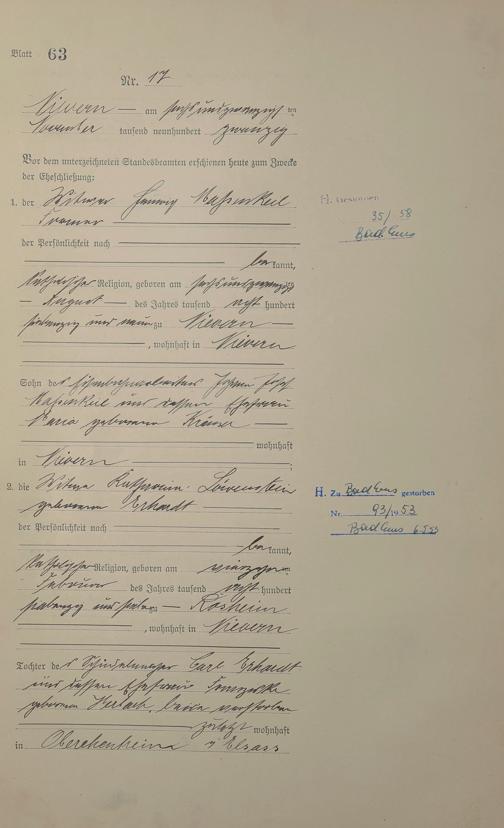 Blatt 63
Nr. 17
Nievern — am sechsundzwanzigsten
November tausend neunhundert zwanzig
Vor dem unterzeichneten Standesbeamten erschienen heute zum Zwecke
der Eheschließung:
1. der Witwer Massenkeil
der Persönlichkeit nach
bekannt,
katholischer Religion, geboren am sechsundzwanzigsten
August — des Jahres tausend acht hundert
siebenzig und neun zu Nievern —
, wohnhaft in Nievern
Sohn des Eisenbahnarbeiters Johann Josef
Massenkeil und dessen Ehefrau
Maria geborenen Krämer —
wohnhaft
in Nievern
2. die Witwe Katharina Löwenstein
geborene Erhardt
der Persönlichkeit nach
bekannt,
katholischer Religion, geboren am vierzehnten
Februar des Jahres tausend acht hundert
siebenzig und sieben zu — Rosheim
, wohnhaft in Nievern
Tochter des Carl Erhardt
und dessen Ehefrau
geborenen beide verstorben
zuletzt wohnhaft
in Oberehenheim i/ Elsass
H.
35/58
Bad Ems
H. Zu Bad Ems gestorben
Nr. 93/1953
Bad Ems 6.5.53